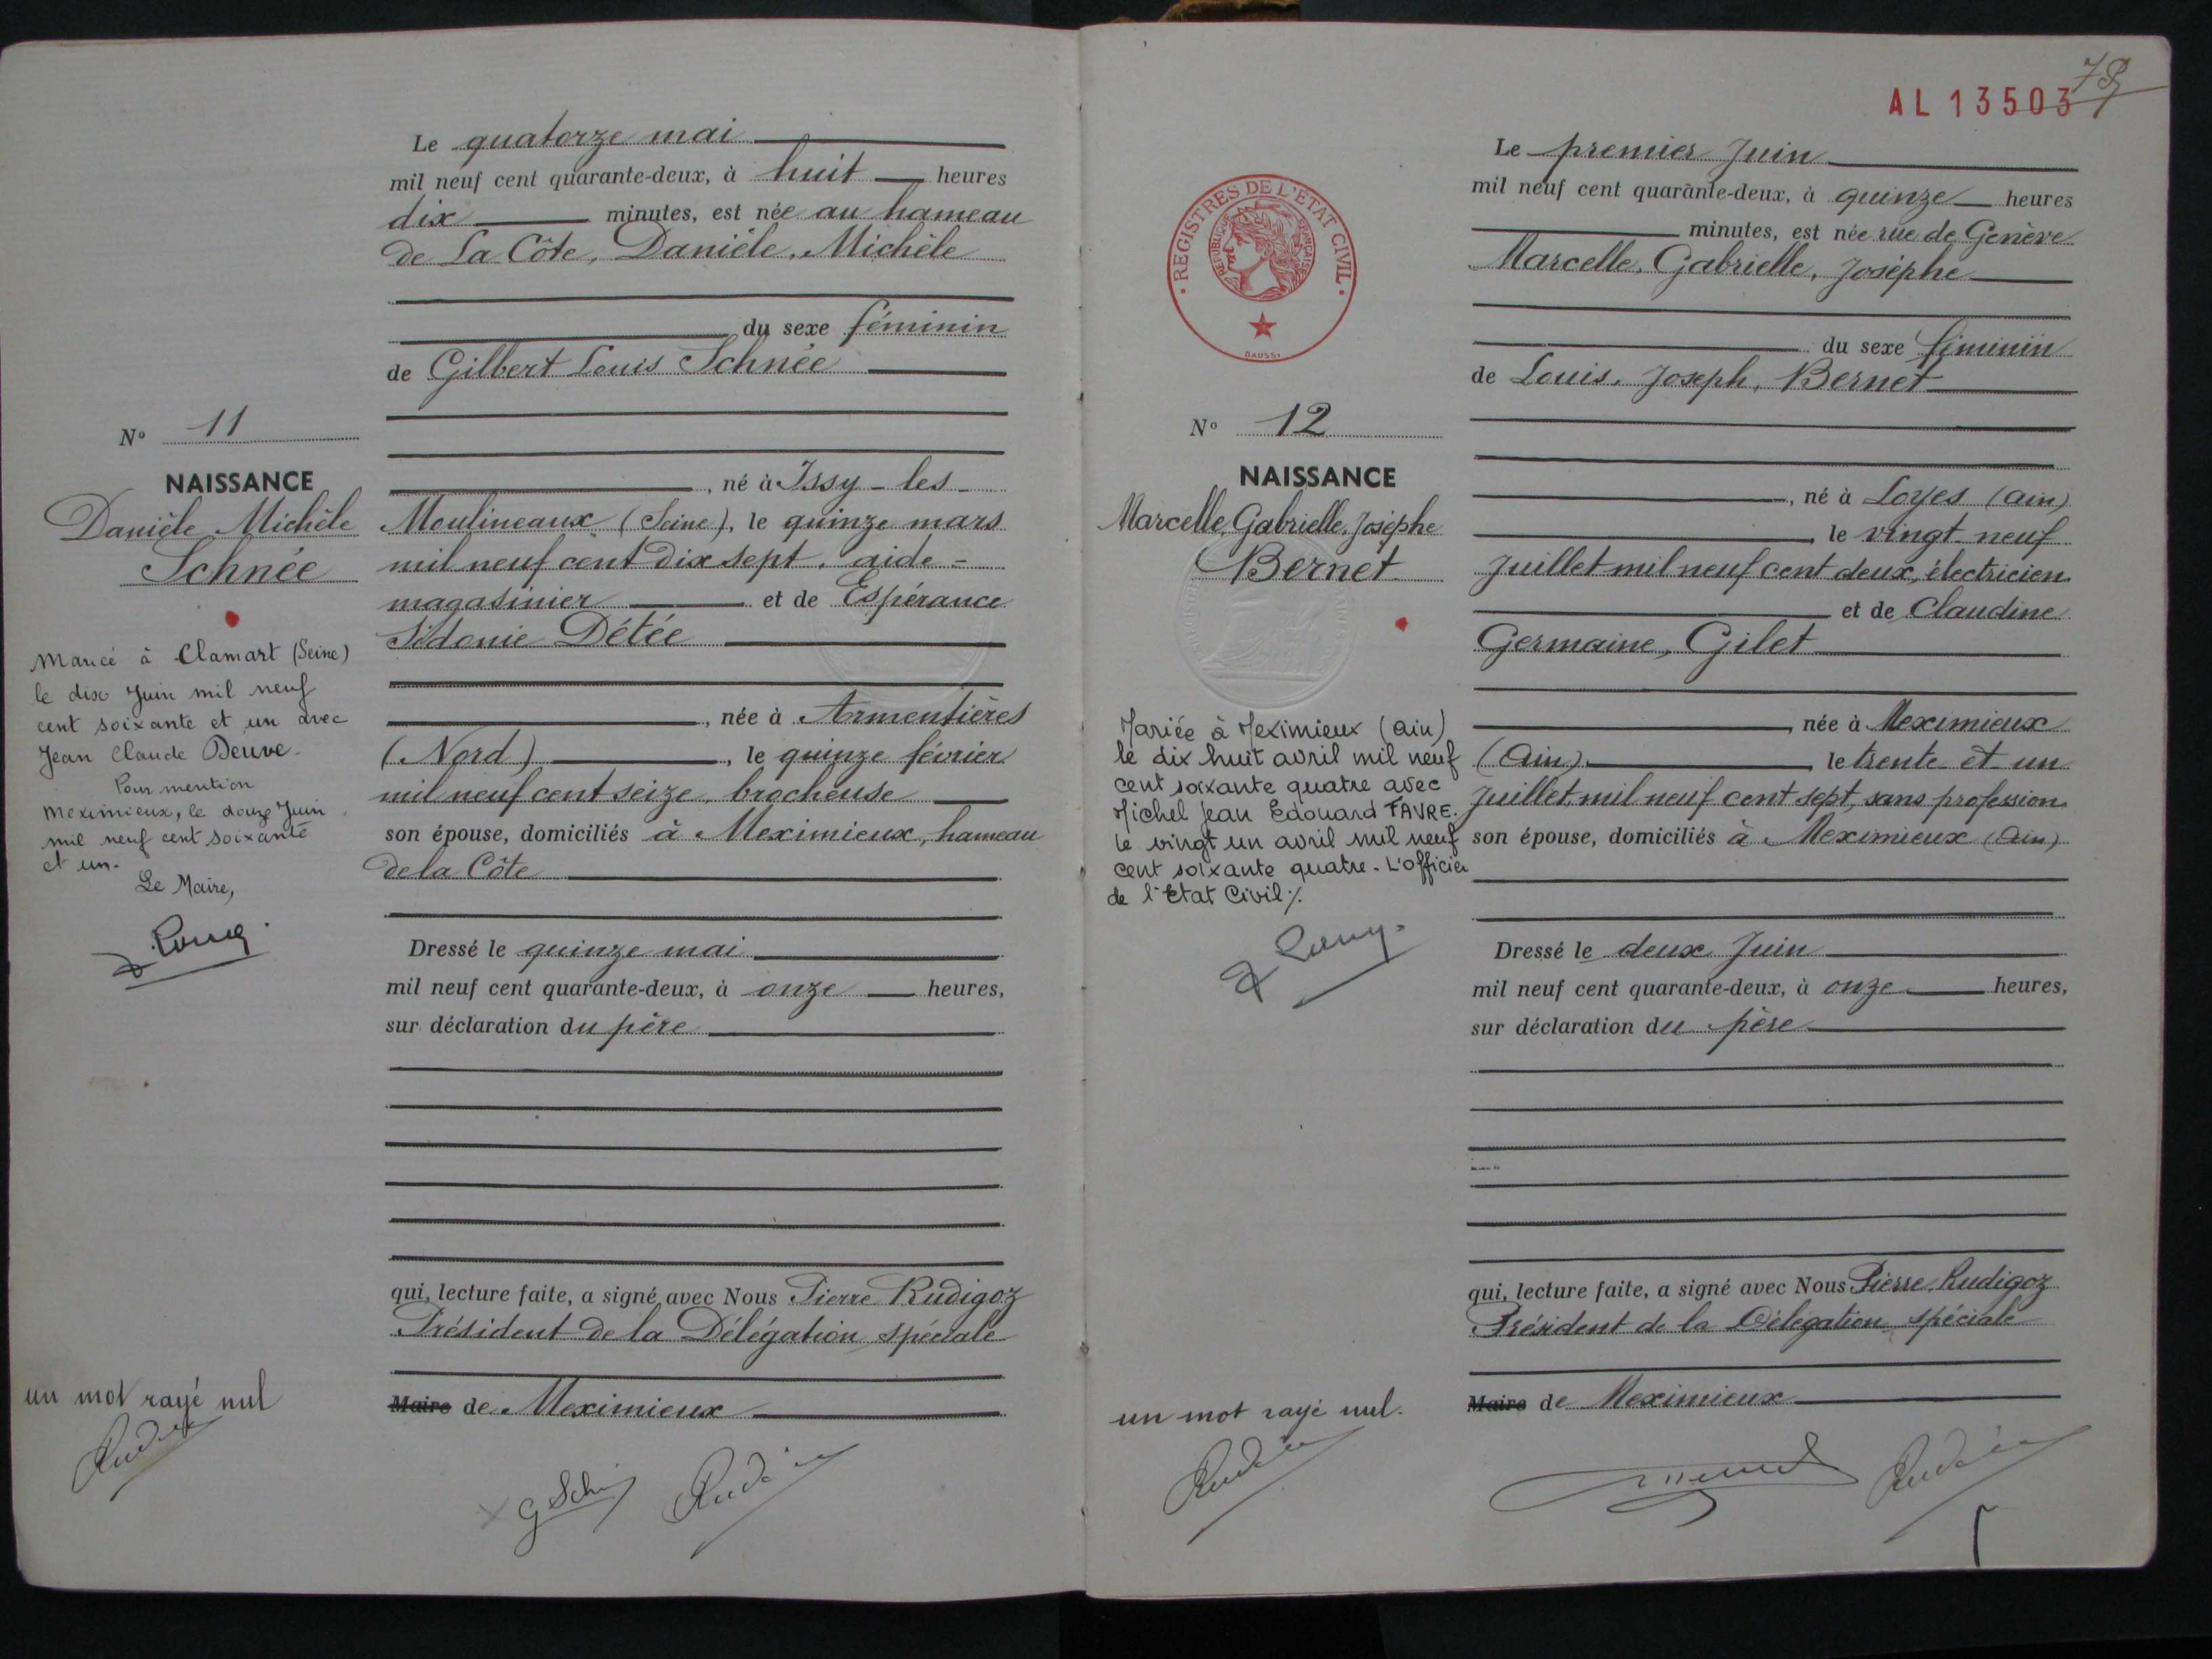 Le quatorze mai
mil neuf cent quarante-deux, à huit heures
dix minutes, est née au hameau
de La Côte, Danièle, Michèle
du sexe féminin
de Gilbert Louis Schnée
N° 11
NAISSANCE
Danièle Michèle
Schnée
, né à Issy-les-
Moulineaux (Seine), le quinze mars
mil neuf cent dix sept, aide-
magasinier et de Espérance
Sidonie Détée
, née à Armentières
(Nord), le quinze février
mil neuf cent seize, brocheuse
son épouse, domiciliés à Meximieux, hameau
de la Côte
Mariée à Clamart (Seine)
le dix Juin mil neuf
cent soixante et un avec
Jean Claude Deuve.
Pour mention
Meximieux, le douze Juin
mil neuf cent soixante
et un.
Le Maire,
Dressé le quinze mai
mil neuf cent quarante-deux, à onze heures,
sur déclaration du père
qui, lecture faite, a signé avec Nous Pierre Rudigoz
Président de la Délégation spéciale
Maire de Meximieux
un mot rayé nul
AL 13503
REGISTRES DE L'ÉTAT CIVIL
RÉPUBLIQUE FRANÇAISE
DAUSSY
Le premier Juin
mil neuf cent quarante-deux, à quinze heures
minutes, est née rue de Genève
Marcelle, Gabrielle, Josèphe
du sexe féminin
de Louis, Joseph, Bernet
N° 12
NAISSANCE
Marcelle, Gabrielle, Josèphe
Bernet
, né à Loyes (Ain)
le vingt neuf
Juillet mil neuf cent deux, électricien
et de Claudine
Germaine, Gilet
, née à Meximieux
(Ain) le trente et un
Juillet mil neuf cent sept, sans profession
son épouse, domiciliés à Meximieux (Ain)
Mariée à Meximieux (Ain)
le dix huit avril mil neuf
cent soixante quatre avec
Michel Jean Edouard FAVRE.
Le vingt un avril mil neuf
cent soixante quatre - L'officier
de l'Etat Civil ./.
Dressé le deux Juin
mil neuf cent quarante-deux, à onze heures,
sur déclaration du père
qui, lecture faite, a signé avec Nous Pierre Rudigoz
Président de la Délégation spéciale
Maire de Meximieux
un mot rayé nul.